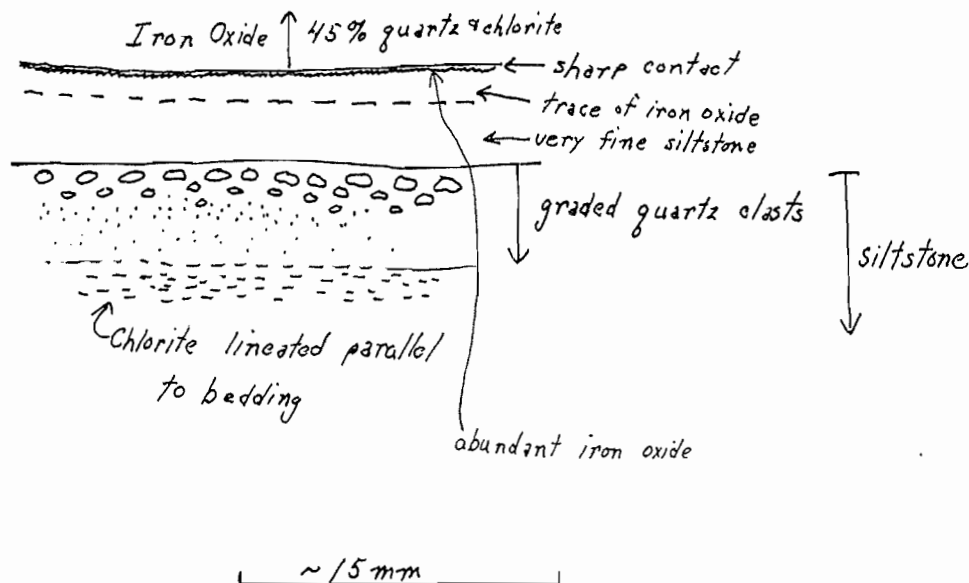 Iron Oxide 45% quartz & chlorite
sharp contact
trace of iron oxide
very fine siltstone
graded quartz clasts
siltstone
Chlorite lineated parallel
to bedding
abundant iron oxide
~15mm